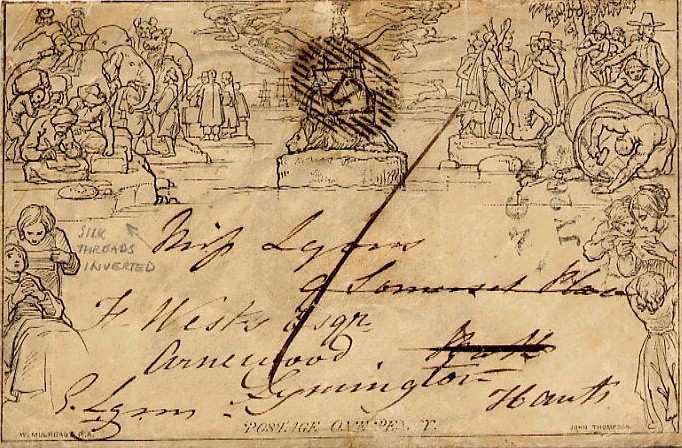 SILK
THREADS
INVERTED
Miss Lyons
Somerset Place
F. Weeks Esqr.
Arnewood
Lymington
Hants
POSTAGE ONE PENNY.
W. MULREADY, R.A.
JOHN THOMPSON